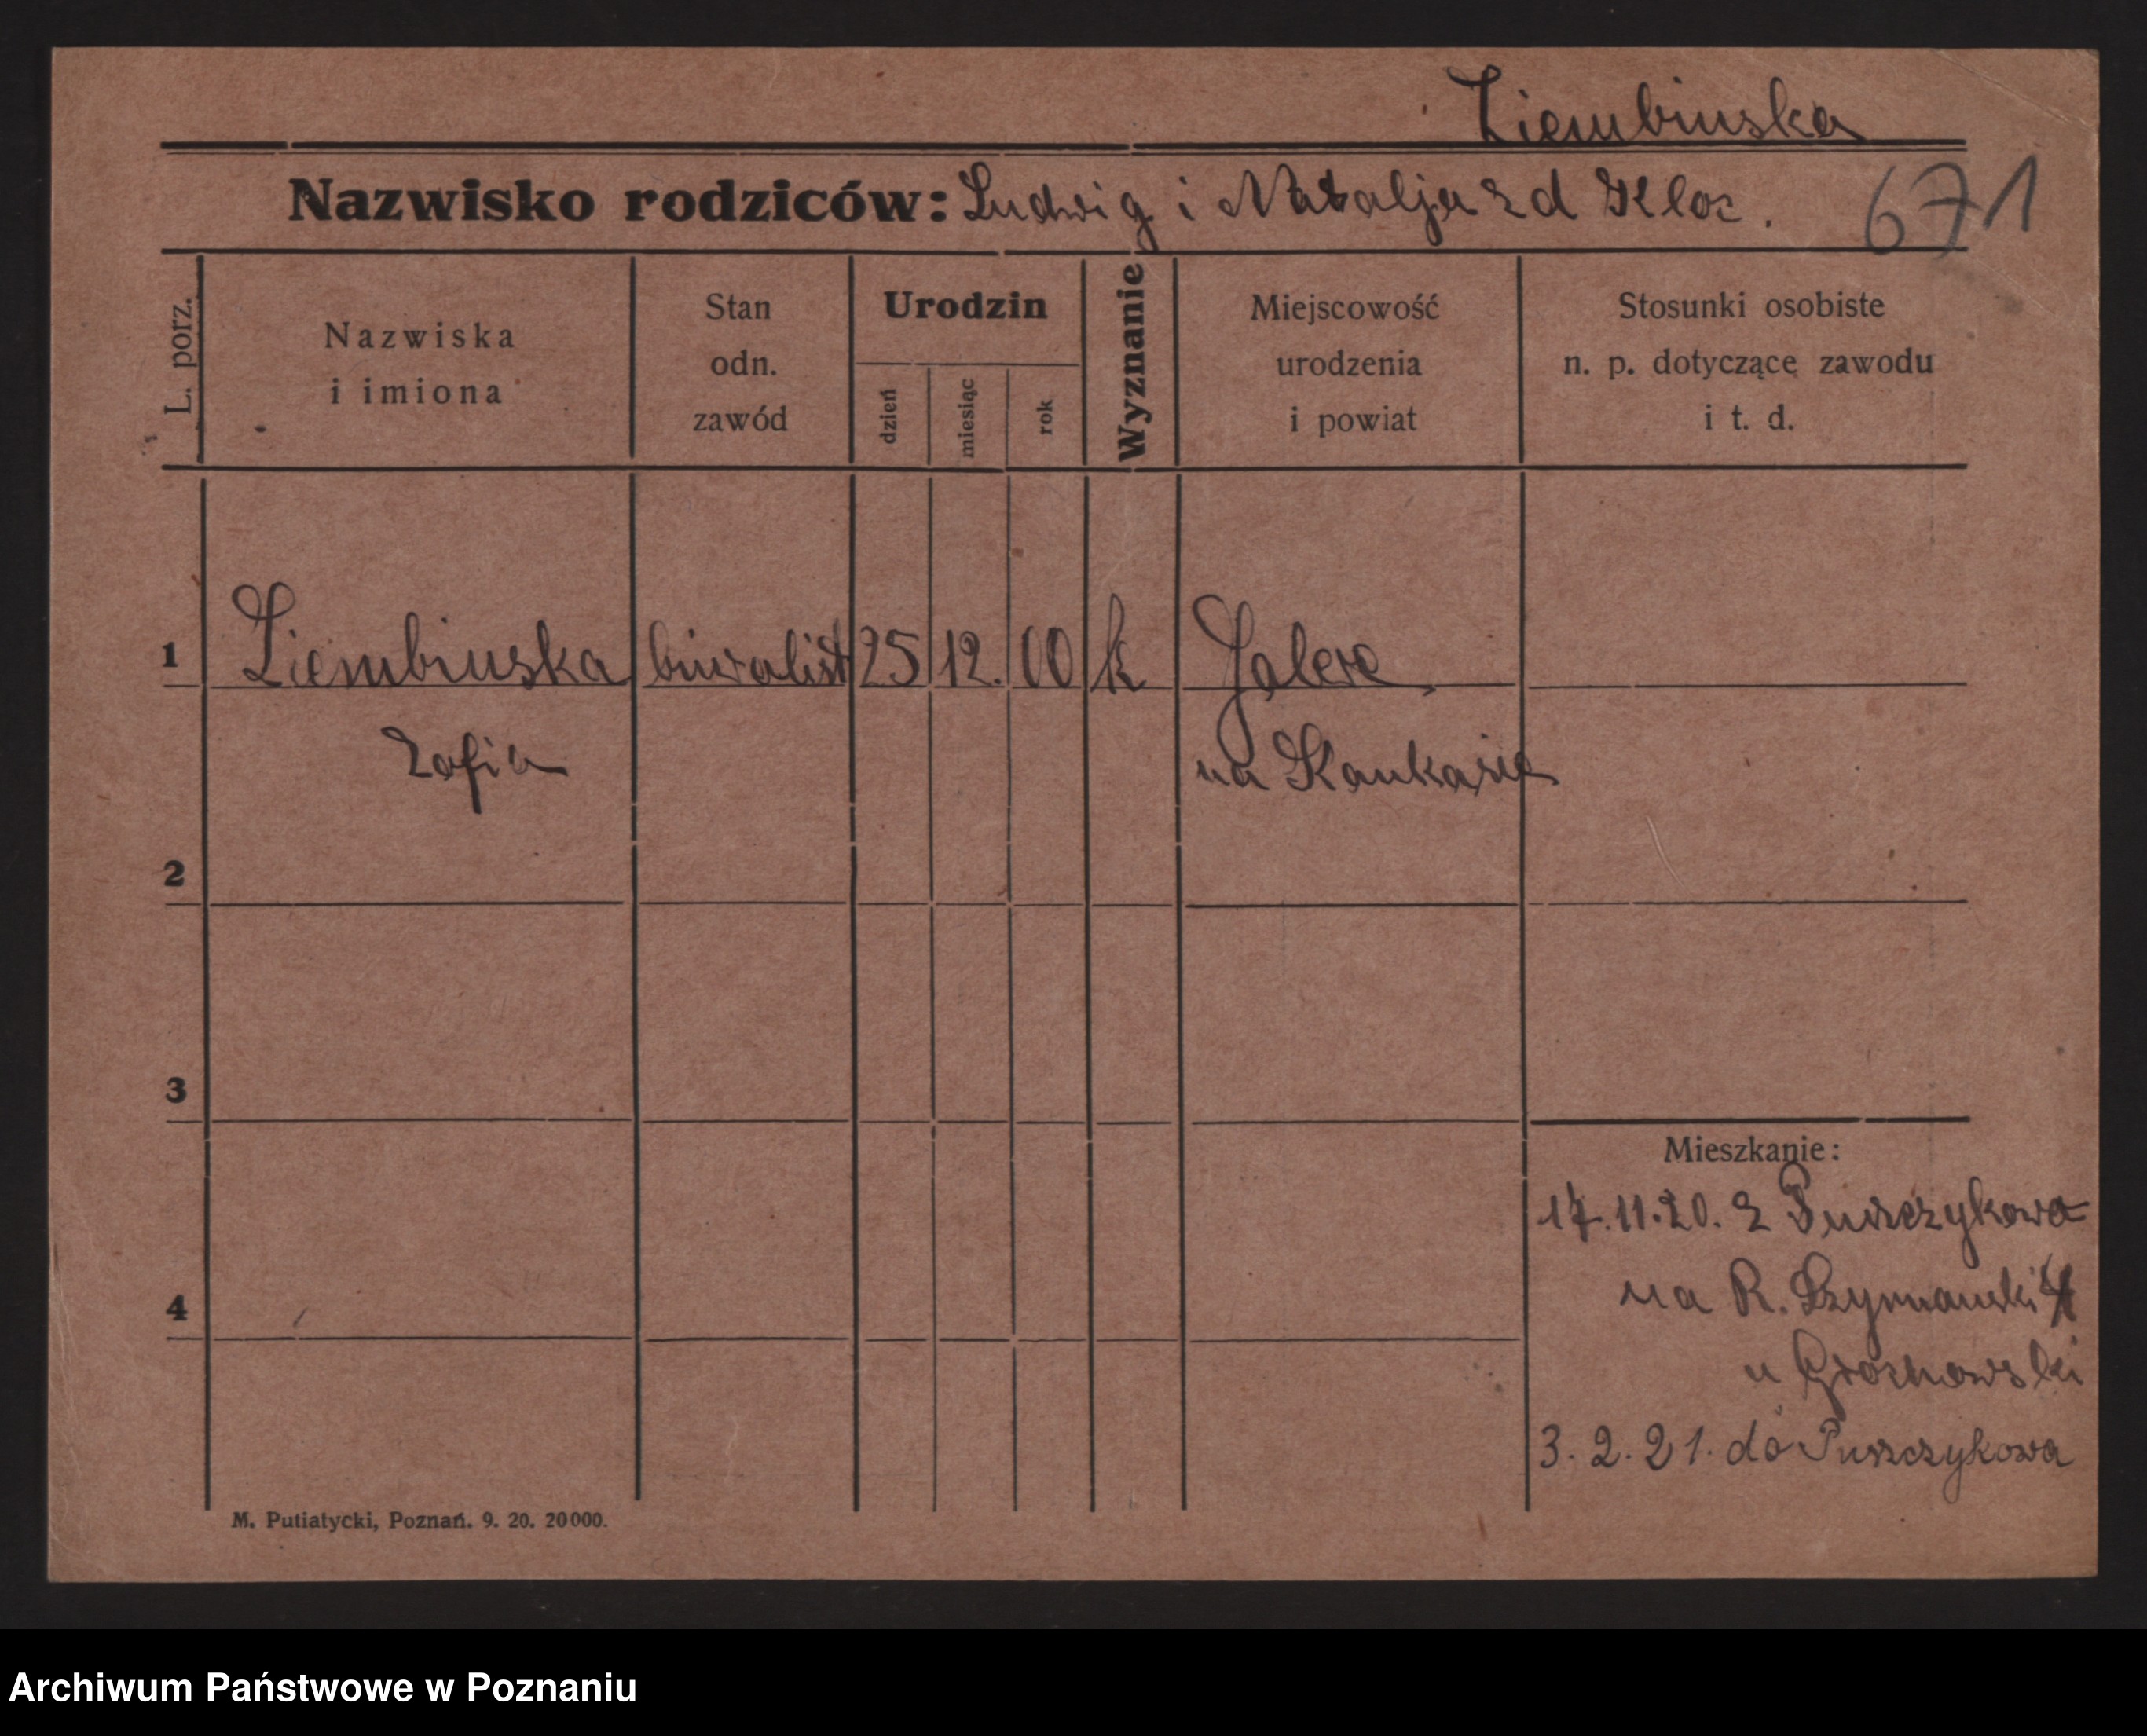 Ziembinska
Nazwisko rodziców: Ludwig i Natalja zd Kloc.
671
L. porz.
Nazwiska
i imiona
Stan
odn.
zawód
Urodzin
dzień
miesiąc
rok
Wyznanie
Miejscowość
urodzenia
i powiat
Stosunki osobiste
n. p. dotyczące zawodu
i t. d.
1 Ziembinska biuralist 25 12. 00 k
Zofia na Kaukazie
2
3
Mieszkanie:
17.11.20. z Puszczykowa
na R. Szymanski 4
4
u Grochowski
3. 2. 21. do Puszczykowa
M. Putiatycki, Poznań. 9. 20. 20000.
Archiwum Państwowe w Poznaniu